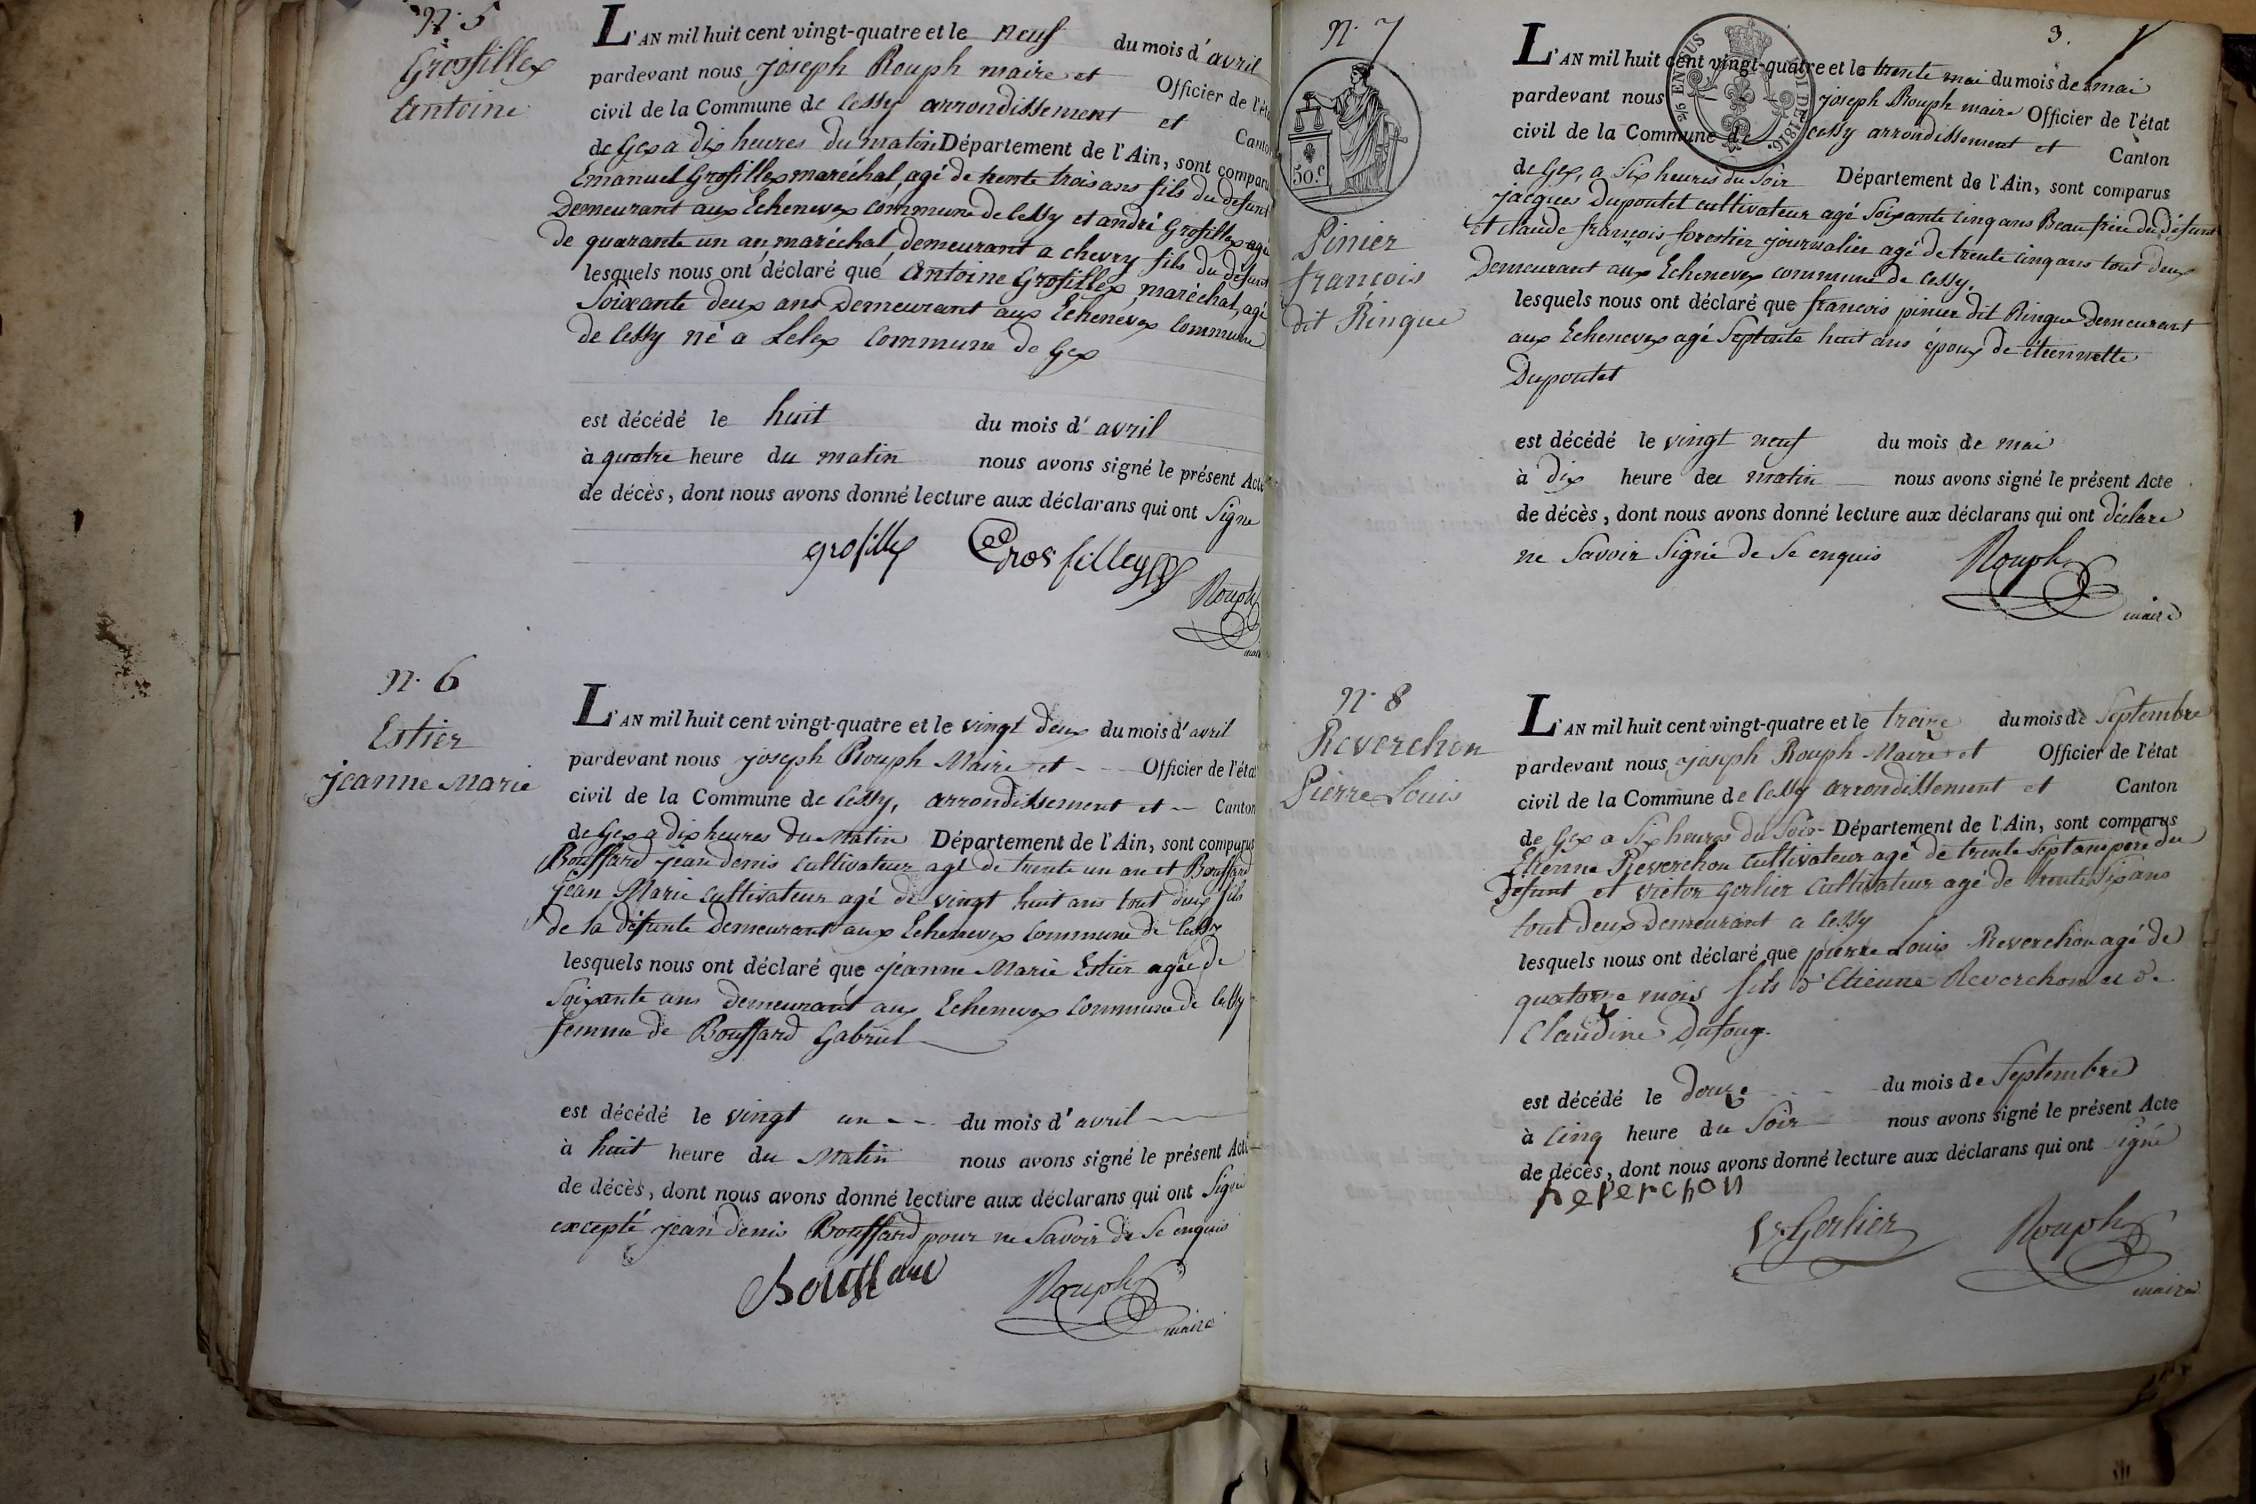 N.° 5
Grosfillex
Antoine
L'AN mil huit cent vingt-quatre et le neuf du mois d'avril
pardevant nous joseph Rouph maire et Officier de l'éta
civil de la Commune de Cessy arrondissement et Canton
de Gex a dix heures du matin Département de l'Ain, sont comparu
Emanuel Grosfillex maréchal, agé de trente trois ans fils du défunt
Demeurant aux Echenevex commune de Cessy et andré Grosfillex agé
de quarante un an, maréchal demeurant a chevry fils du défunt
lesquels nous ont déclaré que Antoine Grosfillex, maréchal, agé
Soixante deux ans Demeurant aux Echenevex Commune
de Cessy né a Lelex Commune de Gex
est décédé le huit du mois d'avril
à quatre heure du matin nous avons signé le présent Acte
de décès, dont nous avons donné lecture aux déclarans qui ont Signe
grosfillex Grosfilley Rouph
maire
N.° 6
Estier
jeanne Marie
L'AN mil huit cent vingt-quatre et le vingt deux du mois d'avril
pardevant nous joseph Rouph Maire et Officier de l'état
civil de la Commune de Cessy, arrondissement et Canton
de Gex a dix heures du Matin Département de l'Ain, sont comparus
Bouffard jean denis cultivateur agé de trente un an et Bouffard
jean Marie cultivateur agé de vingt huit ans tout deux fils
de la défunte Demeurant aux Echenevex Commune de Cessy
lesquels nous ont déclaré que jeanne Marie Estier agée de
Soixante ans demeurant aux Echenevex Commune de Cessy
femme de Bouffard Gabriel
est décédé le vingt un du mois d'avril
à huit heure du Matin nous avons signé le présent Acte
de décès, dont nous avons donné lecture aux déclarans qui ont Signé
excepté jean denis Bouffard pour ne Savoir de Se enquis
Bouffard Rouph
maire
3.
N.° 7
50.c
Pinier
francois
dit Ringue
L'AN mil huit cent vingt-quatre et le trente mai du mois de mai
pardevant nous joseph Rouph maire Officier de l'état
civil de la Commune de Cessy arrondissement et Canton
de Gex, a Six heures du Soir Département de l'Ain, sont comparus
jacques Dupontet cultivateur agé Soixante cinq ans Beau frère du défunt
et claude françois forestier journalier agé de trente cinq ans tout deux
Demeurant aux Echenevex commune de Cessy,
lesquels nous ont déclaré que francois pinier dit Ringue Demeurant
aux Echenevex agé Septente huit ans époux de étiennette
Dupontet
est décédé le vingt neuf du mois de mai
à dix heure du matin nous avons signé le présent Acte
de décès, dont nous avons donné lecture aux déclarans qui ont déclaré
ne Savoir Signé de Se enquis Rouph
maire
N.° 8
Reverchon
Pierre Louis
L'AN mil huit cent vingt-quatre et le treize du mois de Septembre
pardevant nous joseph Rouph Maire et Officier de l'état
civil de la Commune de Cessy arrondissement et Canton
de Gex a Six heures du Soir Département de l'Ain, sont comparus
Etienne Reverchon Cultivateur agé de trente Sept ans père du
défunt et victor Gerlier Cultivateur agé de trente Six ans
tout deux Demeurant a Cessy
lesquels nous ont déclaré que pierre Louis Reverchon agé de
quatorze mois fils d'Etienne Reverchon et de
Claudine Dufour
est décédé le douze du mois de Septembre
à Cinq heure du Soir nous avons signé le présent Acte
de décès, dont nous avons donné lecture aux déclarans qui ont Signé
reverchon
Vr Gerlier Rouph
maire